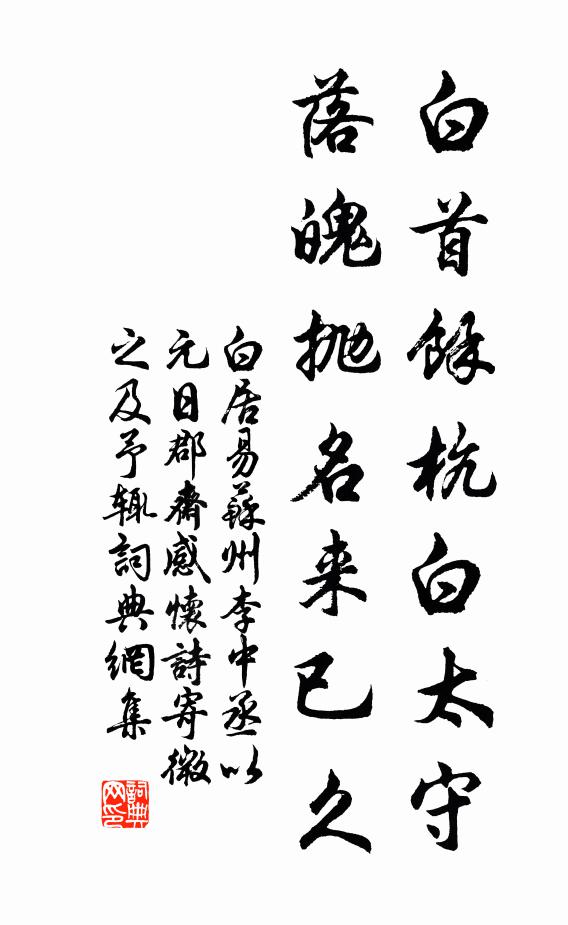 白首餘杭白太守
落魄抛名来已久
白居易蘇州李中丞以
元日郡齋感懷詩寄微
之及予輒詞典網集
詞典网印